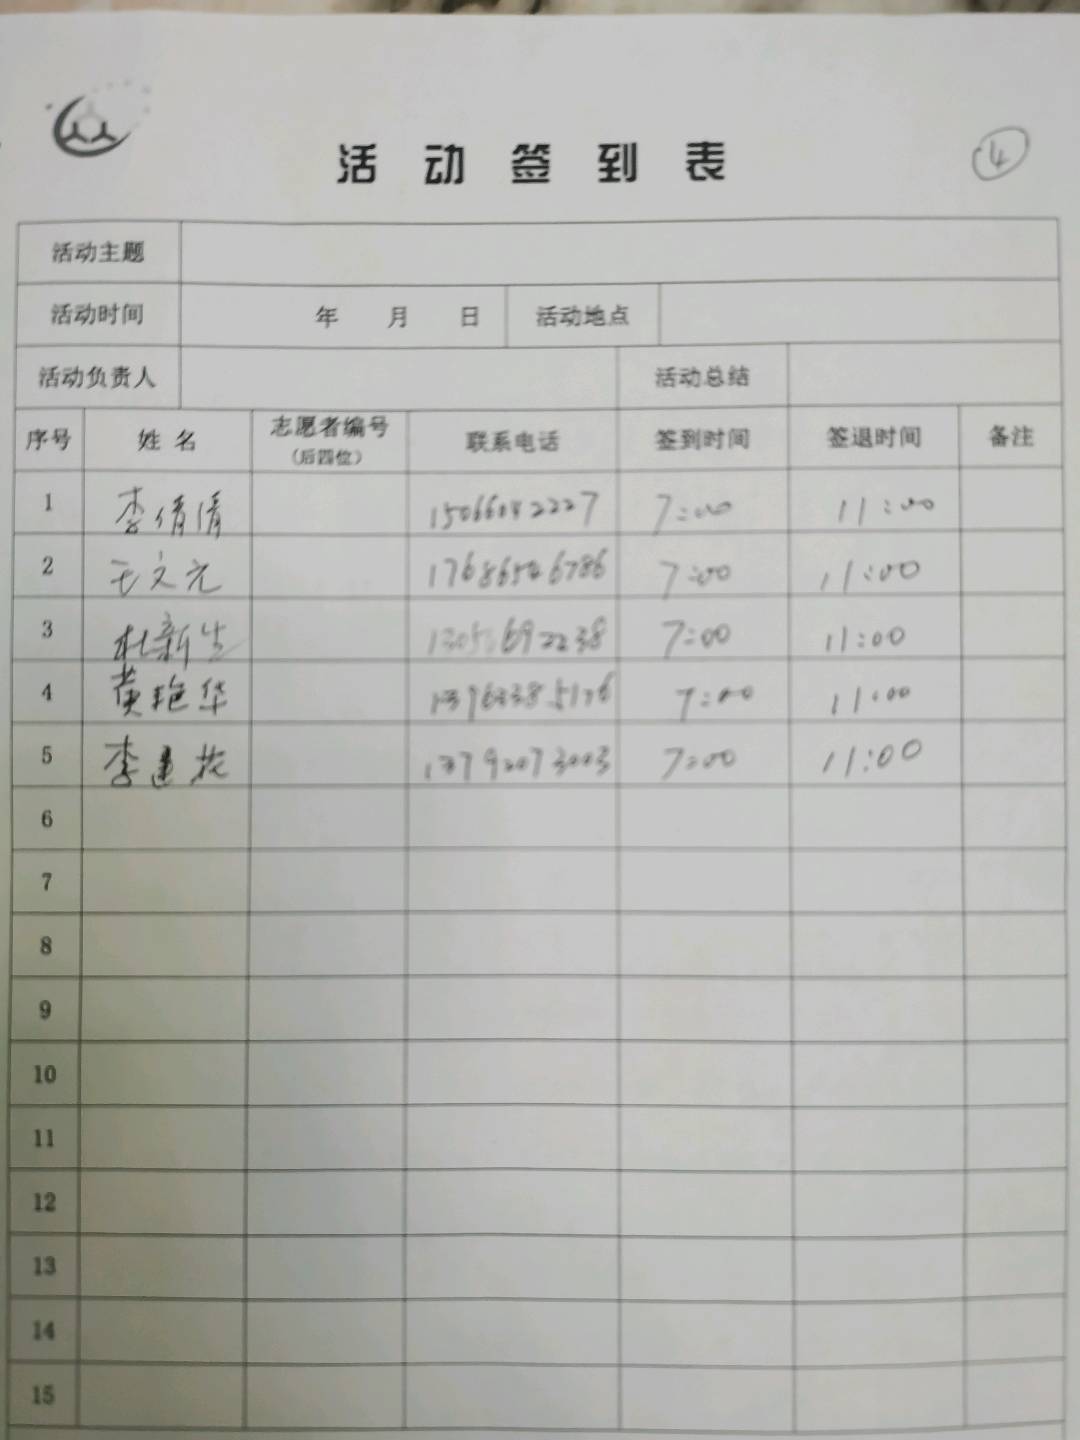 活动签到表
④
活动主题
活动时间 年 月 日 活动地点
活动负责人 活动总结
序号 姓名 志愿者编号 联系电话 签到时间 签退时间 备注
(后四位)
1 李倩倩 15066082227 7:00 11:00
2 王文元 7:00 11:00
3 杜新生 7:00 11:00
4 黄艳华 7:00 11:00
5 李建 13792073003 7:00 11:00
6
7
8
9
10
11
12
13
14
15